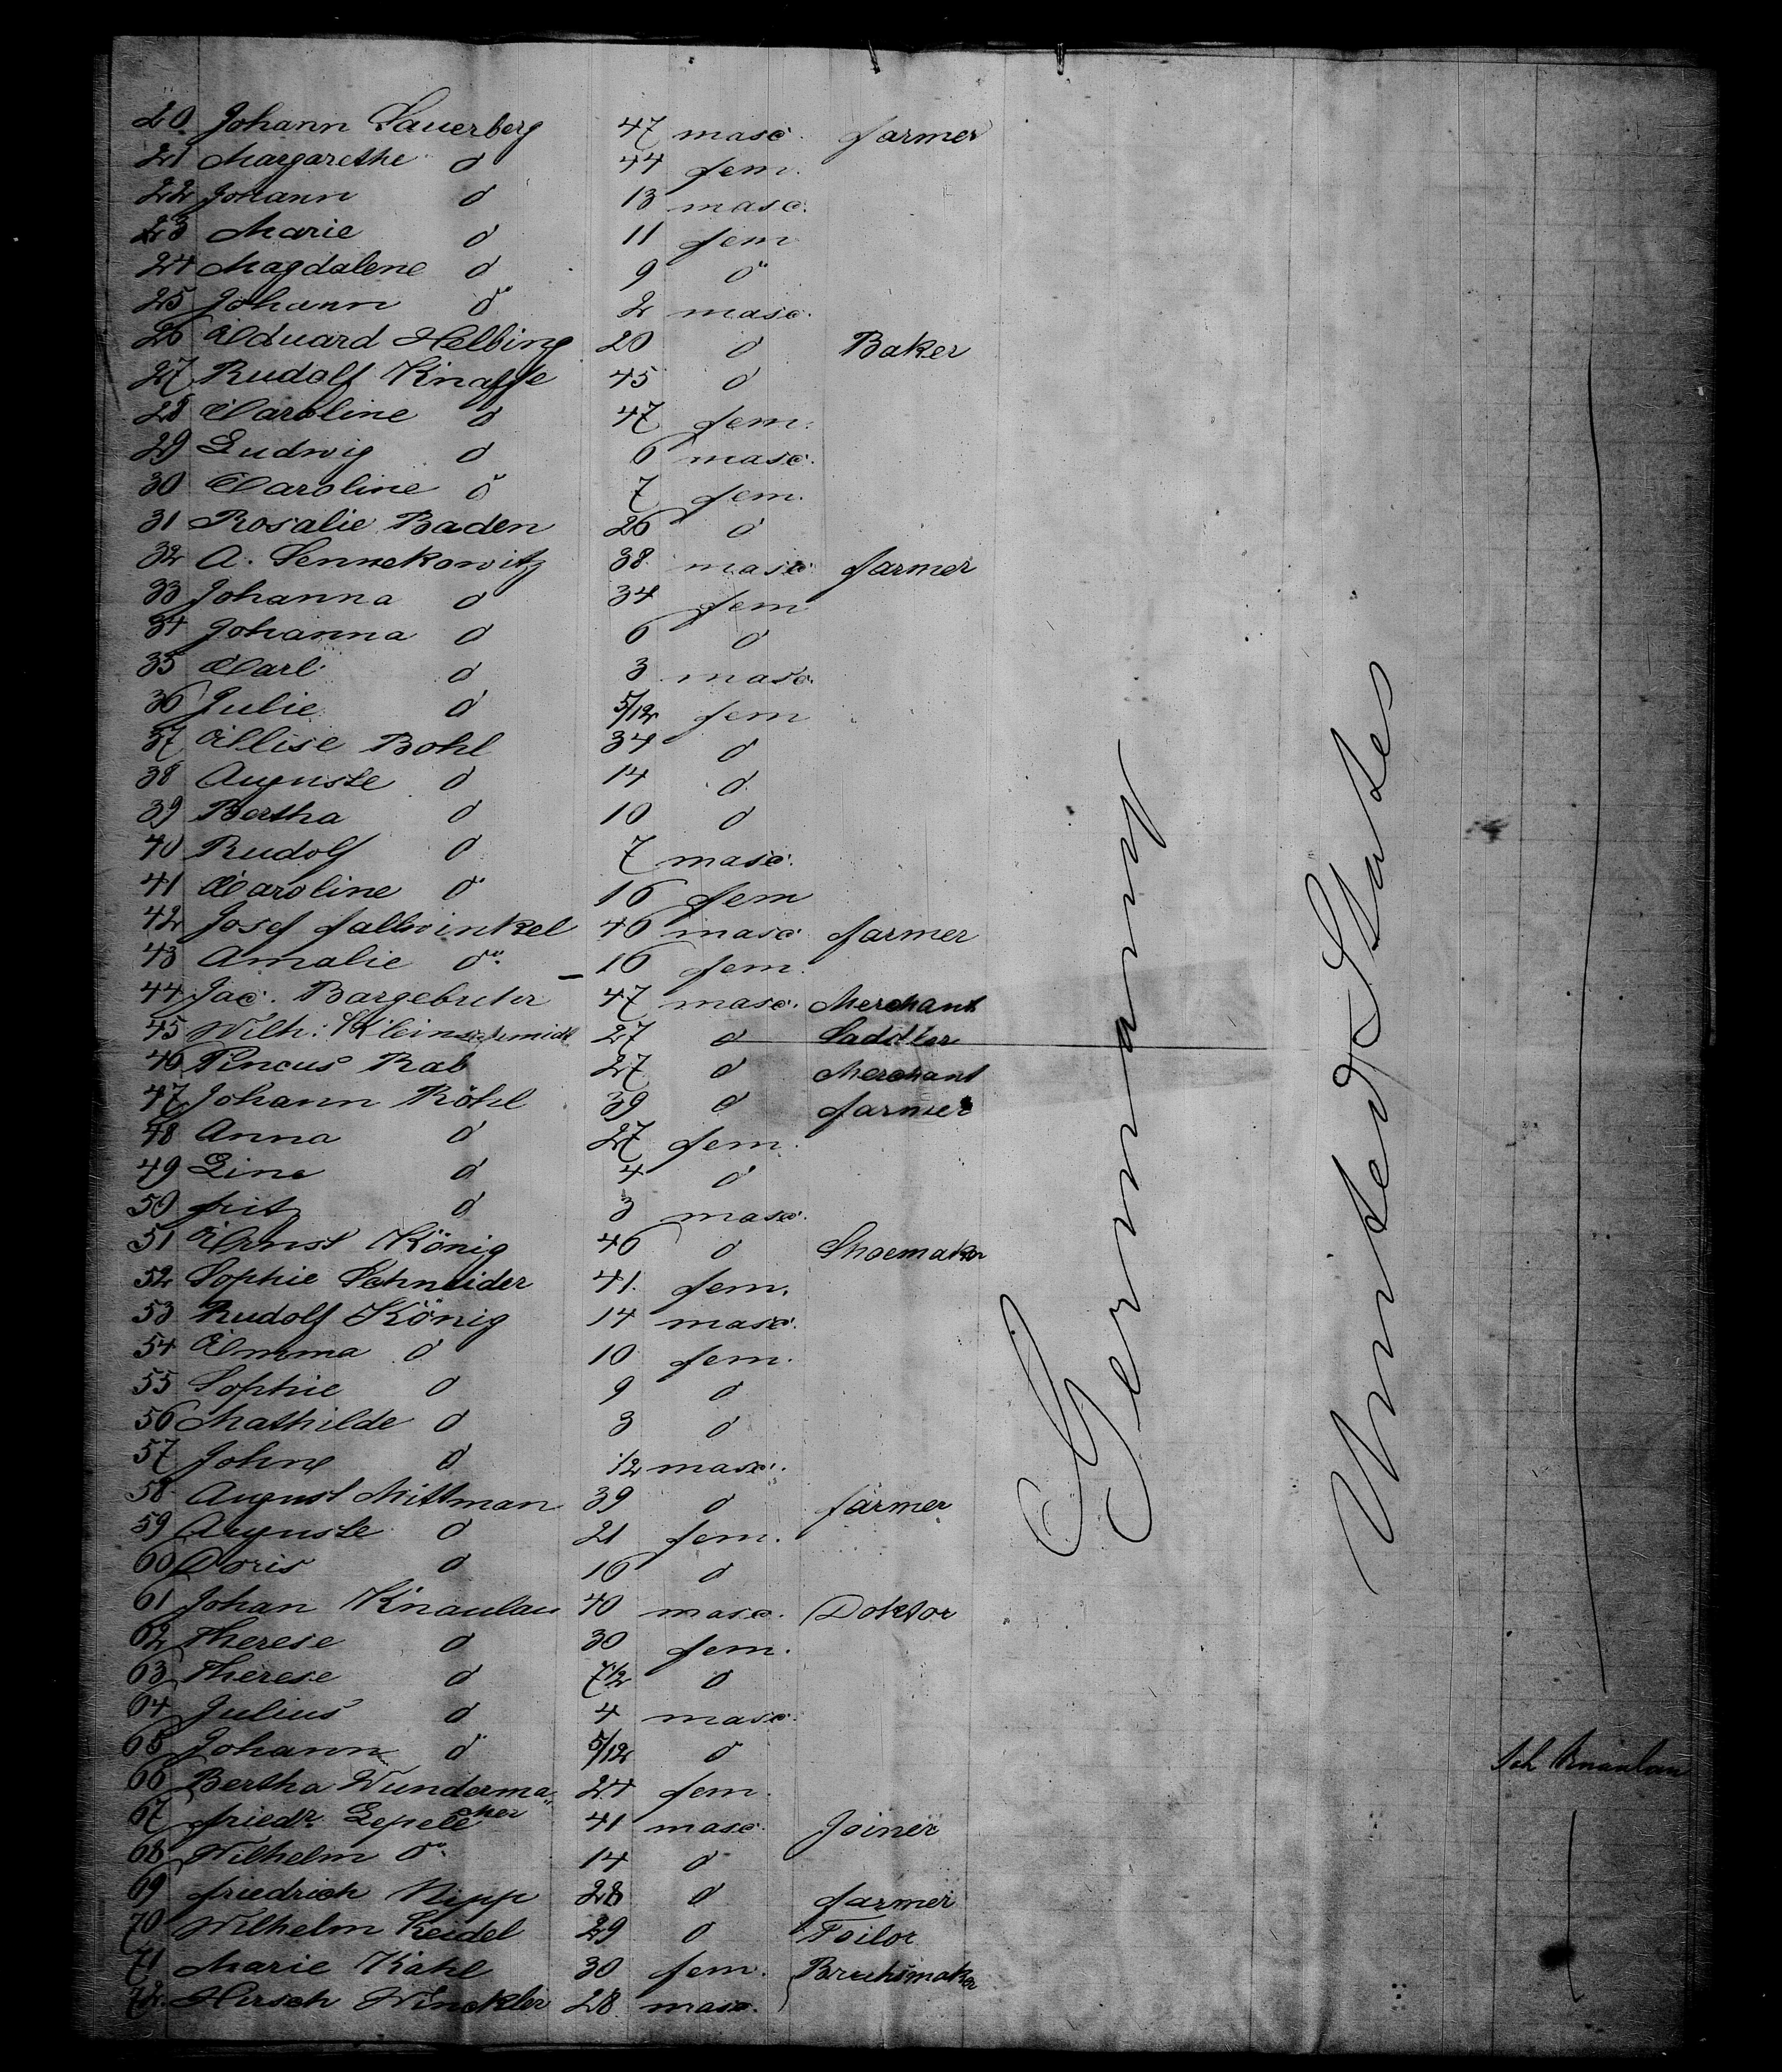 20 Johann Sauerberg 47 masc. farmer
21 Margarethe do 44 fem.
22 Johann do 13 masc.
23 Marie do 11 fem
24 Magdalene do 9 do
25 Johann do 2 masc.
26 Eduard Helbing 20 do Baker
27 Rudolf Knaffe 45 do
28 Caroline do 47 fem.
29 Ludwig do 6 masc.
30 Caroline do 7 fem.
31 Rosalie Baden 26 do
32 A. Sennekowitz 38 masc farmer
33 Johanna do 34 fem
34 Johanna do 6 do
35 Carl do 3 masc.
36 Julie do 5/12 fem
37 Ellise Bohl 34 do
38 Auguste do 14 do
39 Bertha do 10 do
40 Rudolf do 7 masc.
41 Caroline do 16 fem
42 Josef fallwinkel 46 masc farmer
43 Amalie do 16 fem.
44 Jac. Bargebuhr 47 masc. Merchant
45 Wilh: Kleinschmidt 27 do Saddler
46 Pincus Rab 27 do Merchant
47 Johann Röhl 39 do farmer
48 Anna do 27 fem.
49 Line do 4 do
50 fritz do 3 masc.
51 Ernst König 46 do Shoemaker
52 Sophie Schneider 41. fem.
53 Rudolf König 14 masc.
54 Emma do 10 fem.
55 Sophie do 9 do
56 Mathilde do 3 do
57 John do 1/2 masc.
58 August Mittman 39 do farmer
59 Auguste do 21 fem.
60 Doris do 16 do
61 Johan Knaulau 40 masc. Doktor
62 Therese do 30 fem.
63 Therese do 7 1/2 do
64 Julius do 4 masc.
65 Johann do 5/12 do
66 Bertha Wunderma 24 fem.
67 friedr. 41 masc. Joiner
68 Wilhelm do 14 do
69 friedrich Nipp 28 do farmer
70 Wilhelm Seidel 29 do Tailor
71 Marie Kahl 30 fem.
72 Hirsch Winckler 28 masc.
Germany
United States
Joh Knaulau